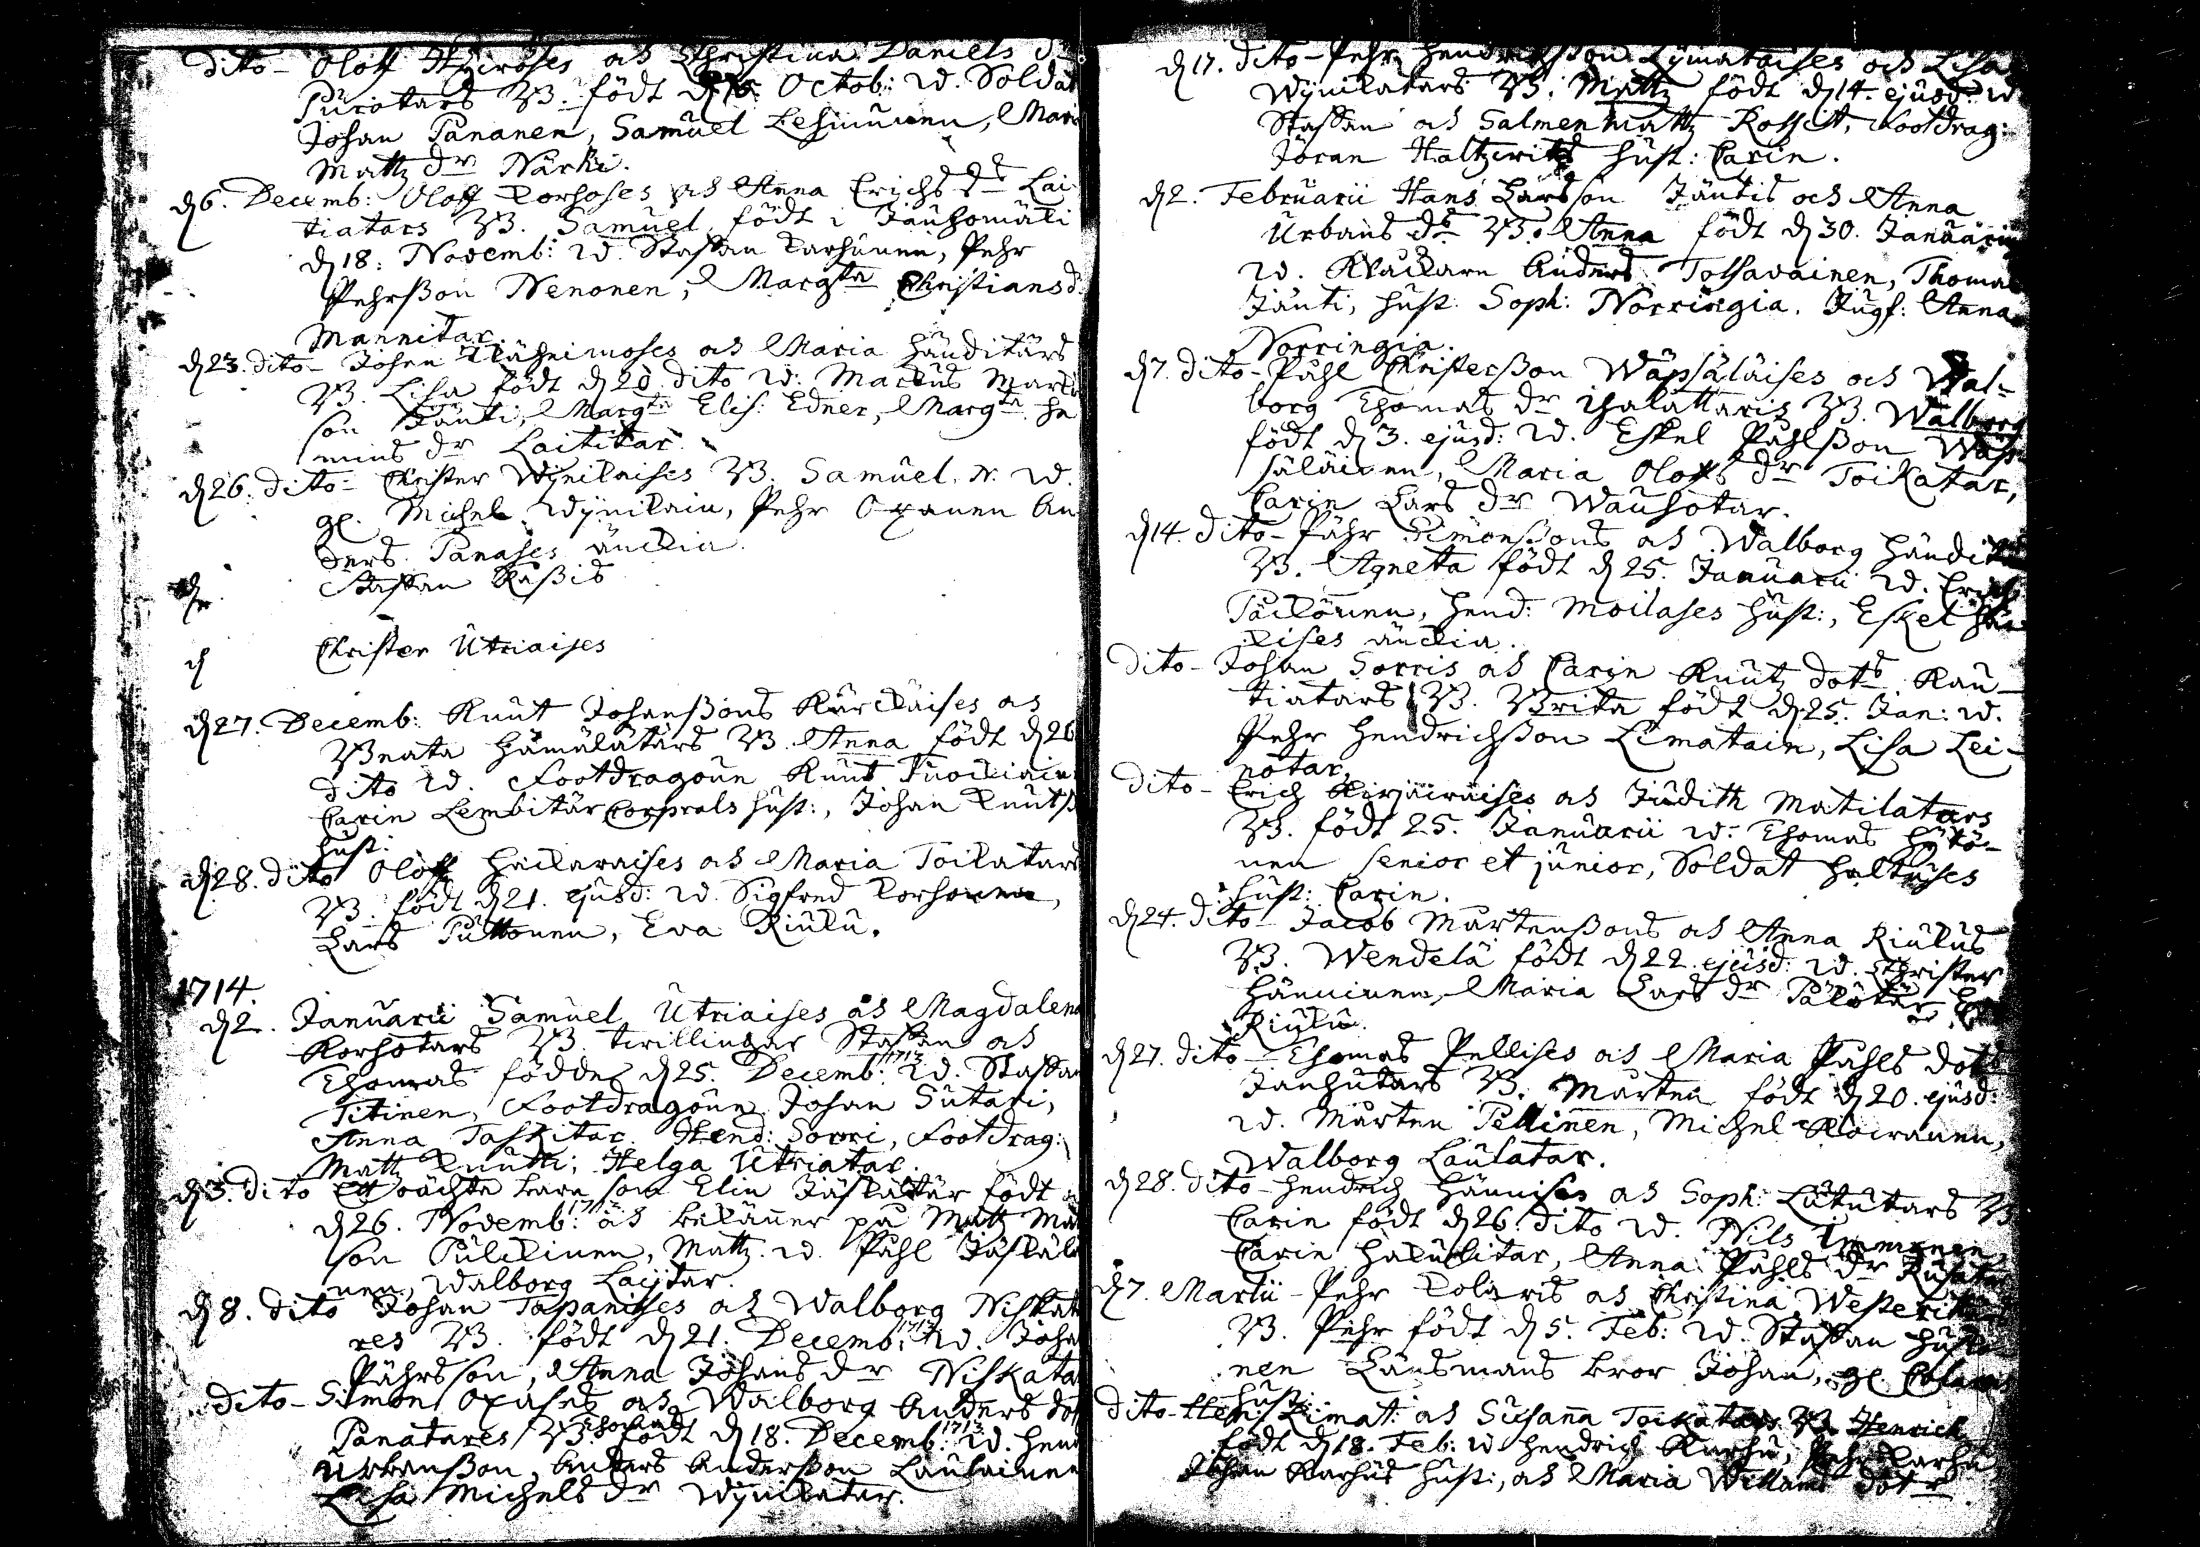 dito - Oloff Hyröses och Christina Daniels dr
Puratars B. född d 16 Octob: w. Soldat
Johan Pananen, Samuel Lehmunen, Mari
Mattz dr Närhi.
d 6. Decemb: Oloff Korhoses och Anna Erichs dr Lai
tiatars B. Samuel född i Jauhomäki
d 18. Novemb: w. Staffan Karhunen, Pehr
Pehrsson Nenonen, Margta Christians d.
Mannitar.
d 23. dito - Johan och Maria Händitärs
B. Lisa född d 20 dito w. Markus Mark
son Jänti, Margta Elis: Edner, Margta He
mins dr Laititar.
d 26. dito - Christer Wijnilaises B. Samuel. N. w.
gl. Michel Wijnilain, Pehr Oxanen An
ders Panases änckia.
Staffan Kassis
d Christer Utriaises
d 27. Decemb: Knut Johanssons Kärckäises och
Beata Hämälätärs B. Anna född d 26
dito w. Footdragoun Knut Tuokiain
Carin Lembitär Corprals hust:, Johan Knutss
hust:
d 28. dito Oloff Hackaraises och Maria Toikatars
B. född d 21. ejusd: w. Sigfred Korhonen,
Lars Puttonen, Eva Riulu.
1714.
d 2. Januarii Samuel Utriaises och Magdalena
Korhotars B. twillingar Staffan och
Thomas födde d 25. Decemb: 1713 w. Staffan
Titinen, Footdragoun Johan Sutari,
Anna Taskitar. Hend: Sorri, Footdrag:
Matts Knutti; Helga Utriatar.
d 3. dito Ett oächta barn som Elin Jäskätär född
d 26. Novemb: och bekänner på Mattz Ma
son Pulckinen, Mattz. w. Påhl Jäskäläi
nen, Walborg Laijtar.
d 8. dito Johan Tapanises och Walborg Niskat
res B. född d 21. Decemb: 1713 w. Joha
Påhrsson, Anna Johans dr Niskata
dito - Simon Oxases och Walborg Anders dot
Panatares B. Thomas född d 18. Decemb: 1713 w. Hend
Urbansson, Anders Andersson Laulainen
Lisa Michels dr Wijnikatar.
d 17. dito - Pehr Hendrichsson Lijmataises och Lisa
Wijnikatars B. Mattz född d 14. ejusd: w
Staffan och Salmen Mattz Footdrag:
Jöran Haltzwitz hust: Carin.
d 2. Februarii Hans Larsson Jäntis och Anna
Urbans ds B. Anna född d 30. Januarii
w. Klåckare Anders Tolfavainen, Thomas
Jänti, hust: Soph: Norringia. Jugf: Anna
Norringia.
d 7. dito - Påhl Christersson Wäpsäläises och Wal-
borg Thomas dr B. Walborg
född d 3. ejusd: w. Eskel Påhlsson Wäp
säläinen, Maria Olofs dr Toikatar,
Carin Lars dr Wauhotar.
d 14. dito - Påhr Simonssons och Walborg Händitä
B. Agneta född d 25. Januarii w. Erich
Päckönen, Hend: Moilases hust:, Eskel
kises änckia.
dito - Johan Sorris och Carin Knutz dots Kau-
tiatars B. Brita född d 25. Jan: w.
Pehr Hendrichsson Limatain, Lisa Lei-
notar.
dito - Erich Kirjäwäises och Judith Matilatars
B. född 25. Januarii w. Thomas Hytö-
nen senior et junior, Soldat Haltuses
hust: Carin.
d 24. dito - Jacob Mårtenssons och Anna Riulus
B. Wendelä född d 22. ejusd: w. Christer
Hänninen, Maria Lars dr Pälötär
Riulu.
d 27. dito - Thomas Pellises och Maria Påhls dots
Janhutars B. Mårten född d 20. ejusd:
w. Mårten Pellinen, Michel Kowanen,
Walborg Laulatar.
d 28. dito - Hendrich Hännises och Soph: Lututars B
Carin född d 26. dito w. Nils Immonen
Carin Hakulitar, Anna Påhls dr
d 7. Martii - Pehr Kolaris och Christina Westerit
B. Pehr född d 5. Feb: w. Staffan
nen Länsmans bror Johan, gl.
hust:
dito - Hen: Limat: och Susana Toikatars B. Henrich
född d 18. Feb: w Hendrich Karhu, Pehr Karhu
Johan Karhus hust:, och Maria Willams dotr